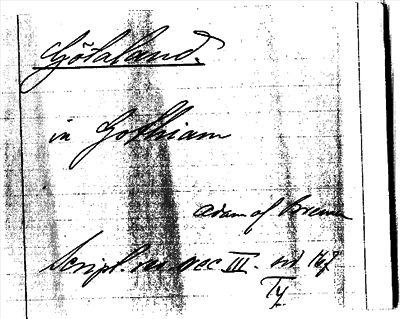 Götaland.
in Gothiam
Adam af Bremen
Script. rer. svec III.
Ty